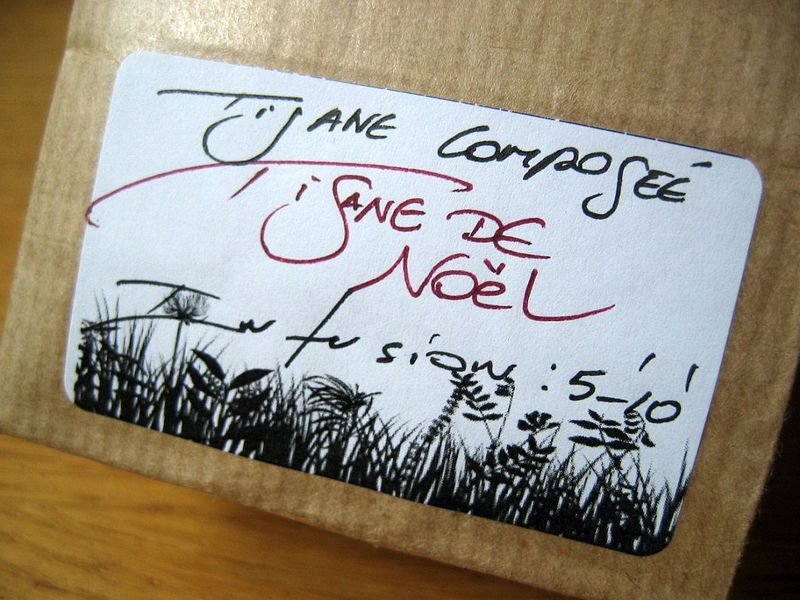 TISANE COMPOSEÉ
TISANE DE
NOËL
Infusion : 5-10'